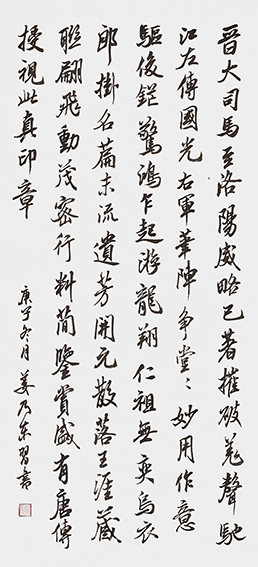 晋大司馬至洛陽威略已著摧破羌聲馳
江左傳國光右軍筆陣争堂々妙用作意
驅俊鋩驚鴻乍起游龍翔仁祖無奕烏衣
郎掛名篇末流遺芳開元散落王涯藏
聯翩飛動茂密行料簡鑒賞盛有唐傳
授視此真印章
庚子冬月姜乃東習書